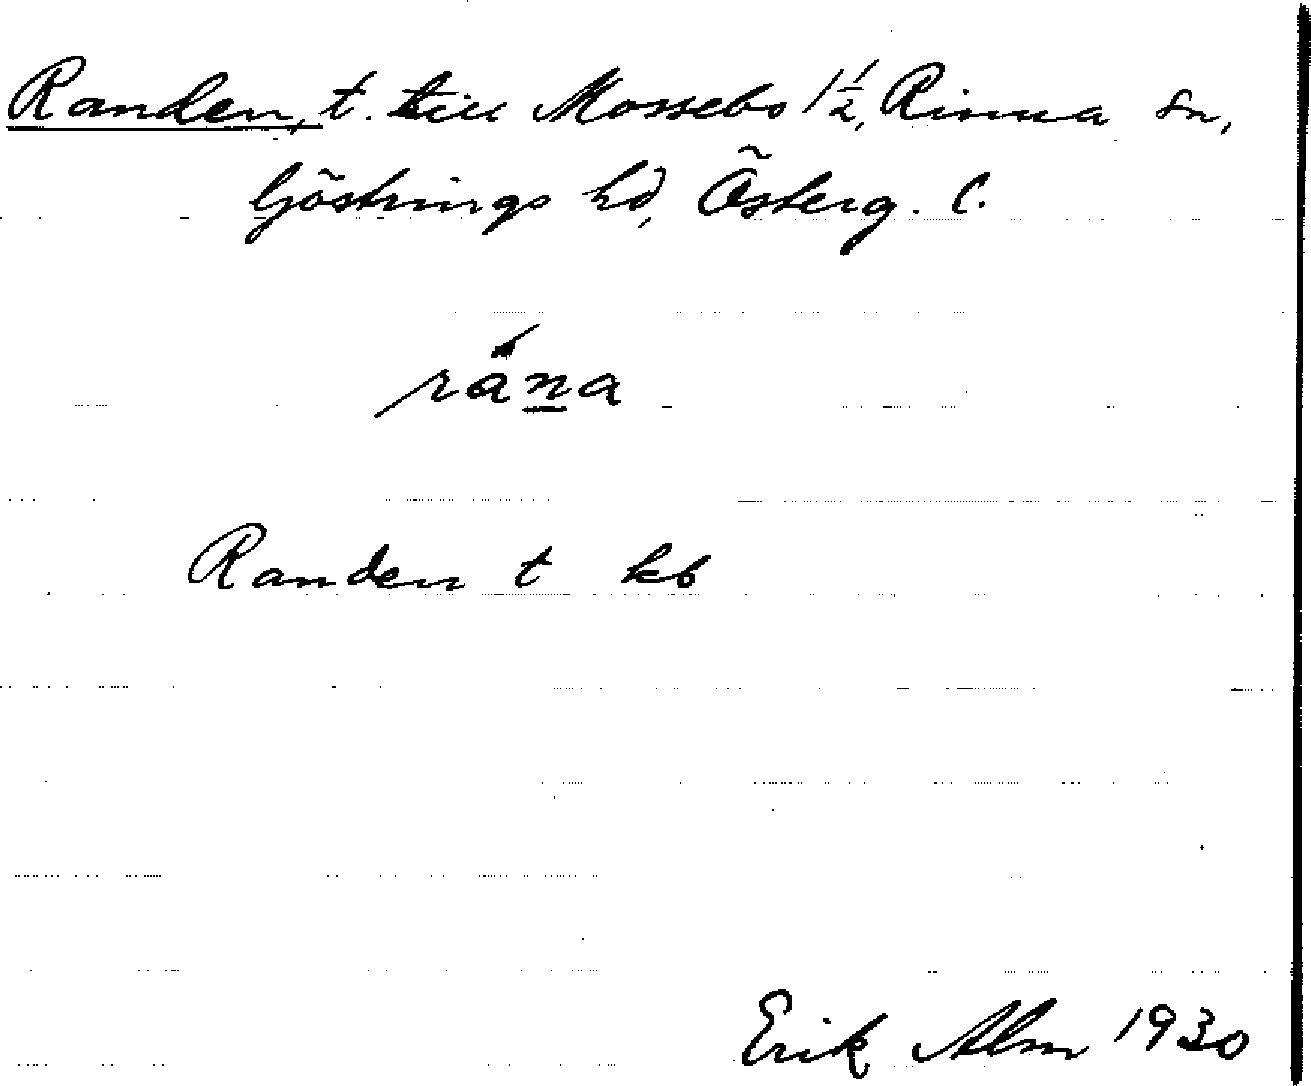 Randen, t. till Mossebo 1 1/2, Rinna sn,
Göstrings hd, Österg. l.
rána
Randen t kb
Erik Alm 1930